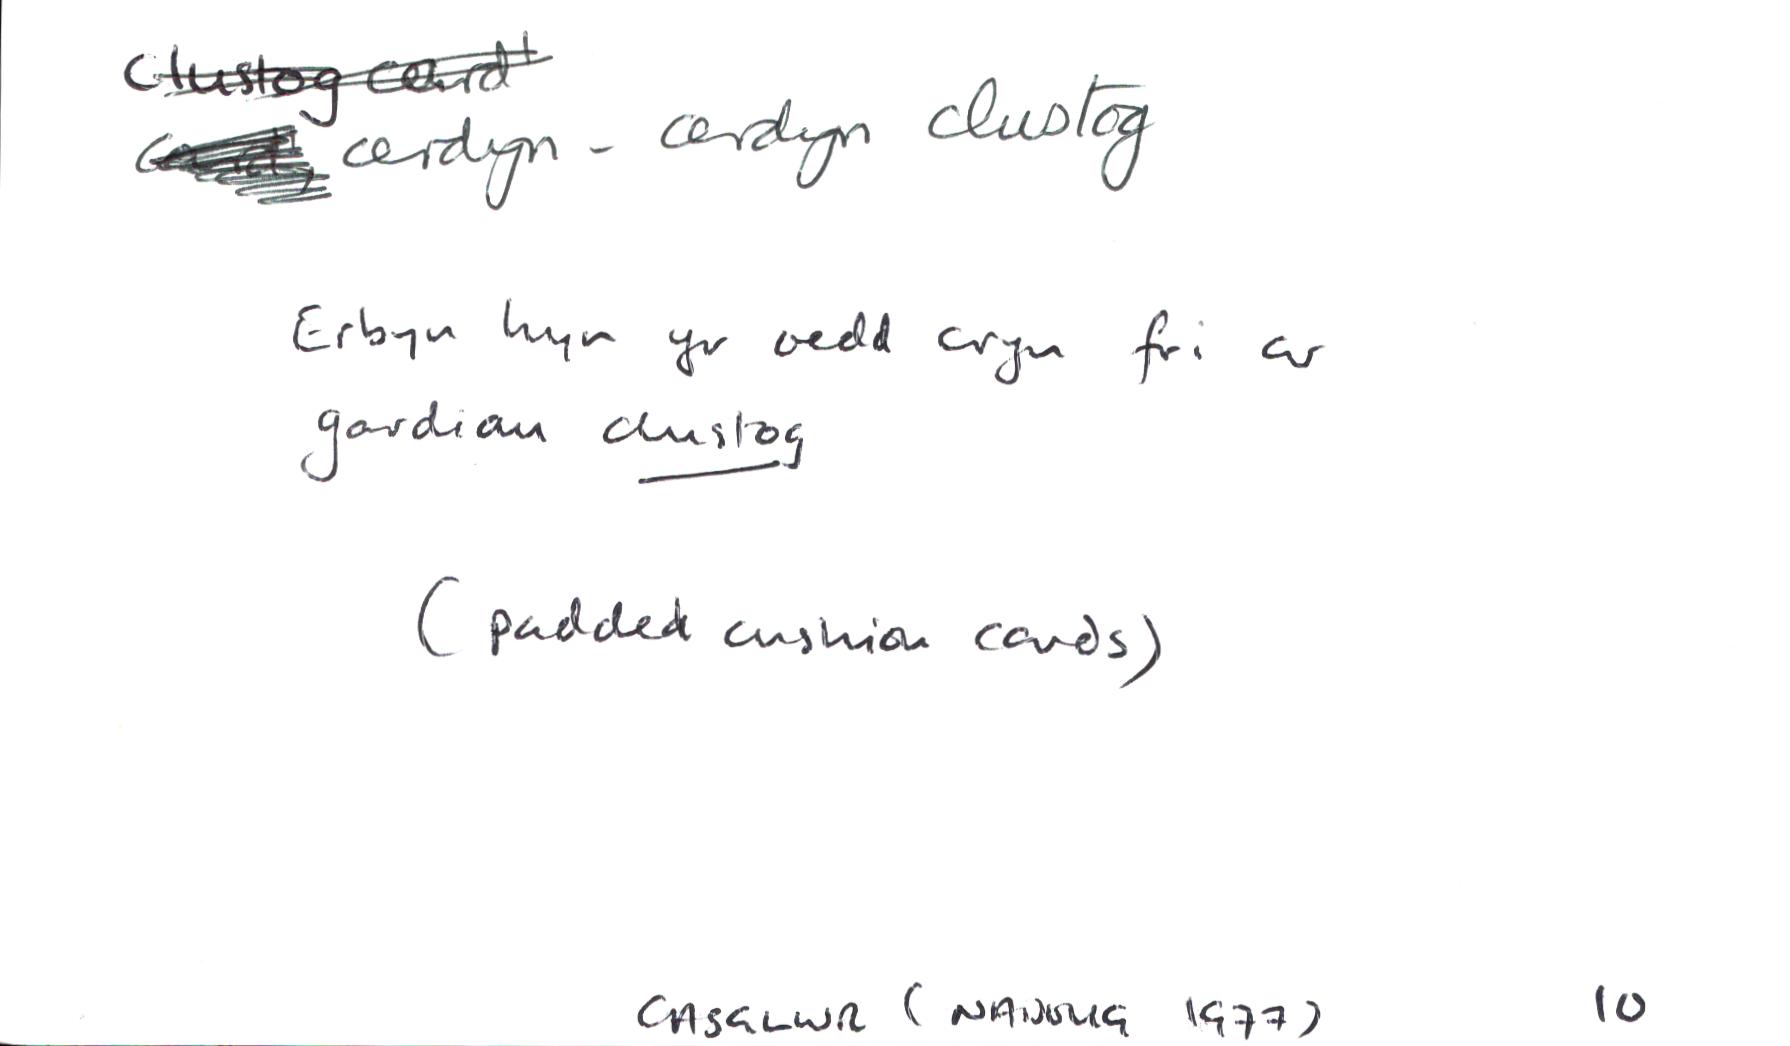 Clustog card
cerdyn - cerdyn clustog
Erbyn hyn yr oedd cryn fri ar
gardian clustog
(padded cushion cards)
CASGLWR (NADOLIG 1977) 10